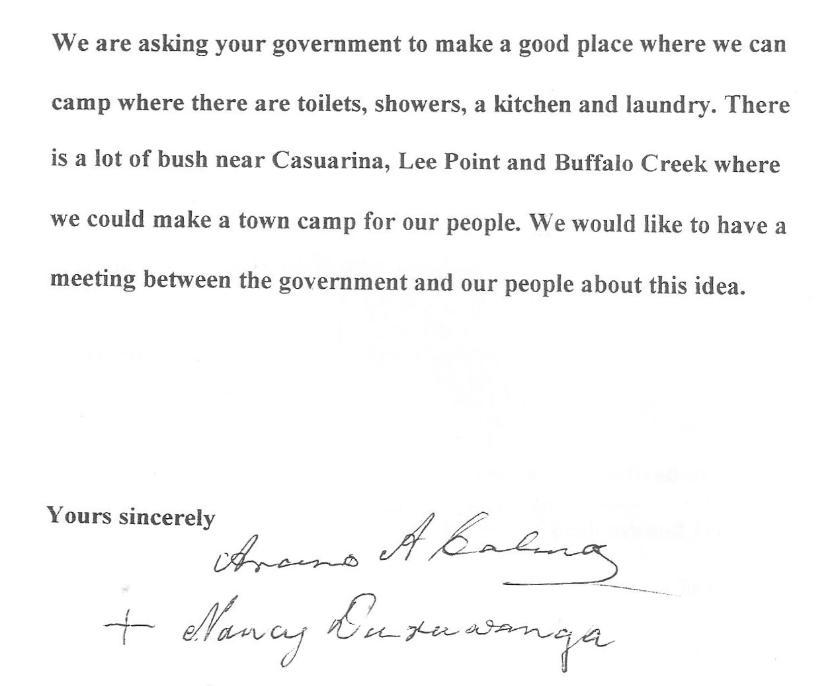 We are asking your government to make a good place where we can
camp where there are toilets, showers, a kitchen and laundry. There
is a lot of bush near Casuarina, Lee Point and Buffalo Creek where
we could make a town camp for our people. We would like to have a
meeting between the government and our people about this idea.
Yours sincerely
A
+ Nancy